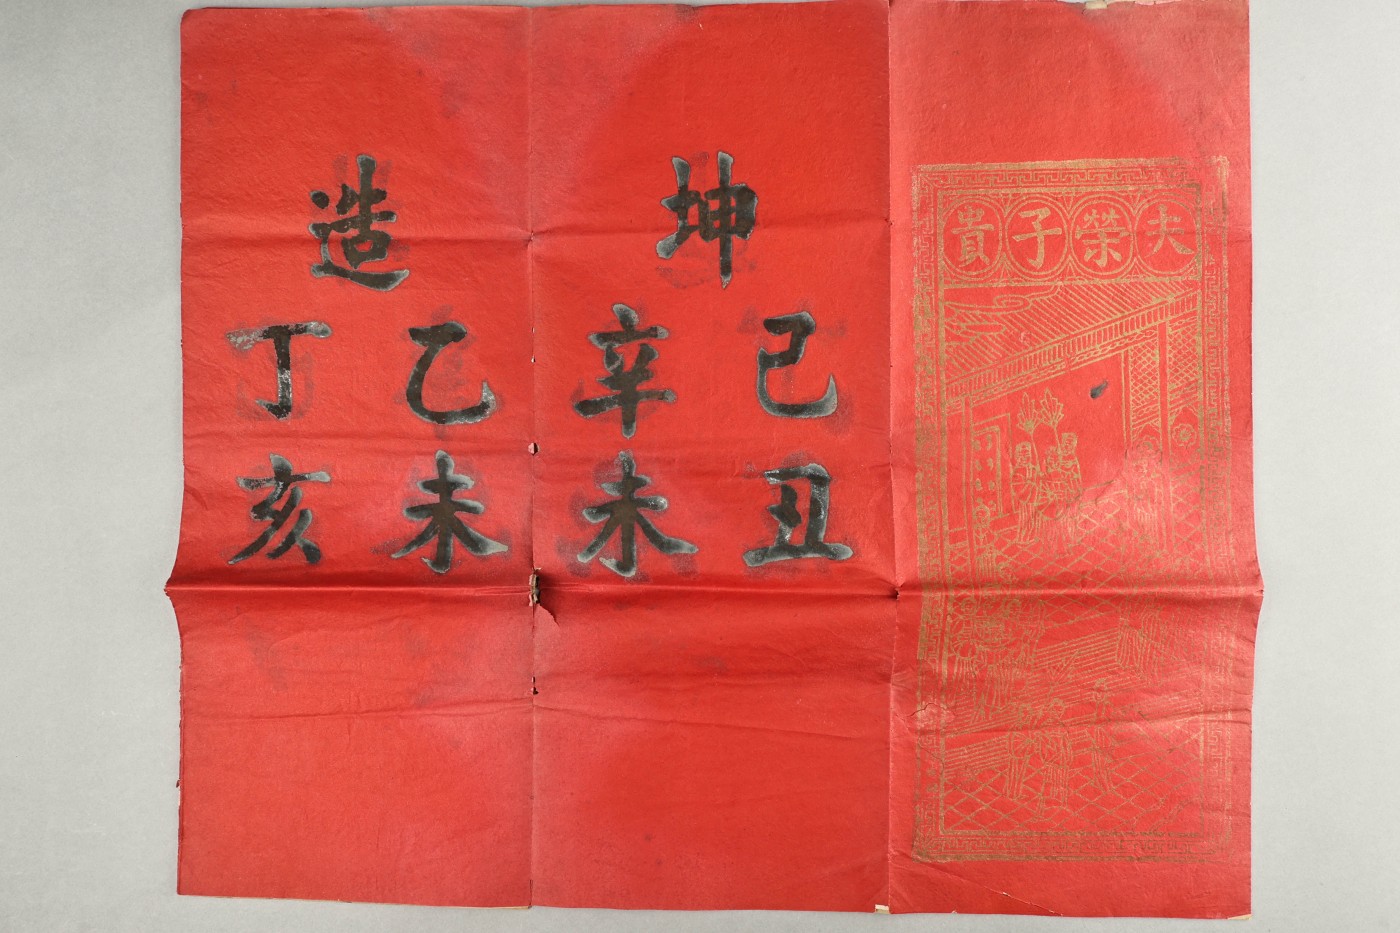 夫榮子貴
坤造
己辛乙丁
丑未未亥